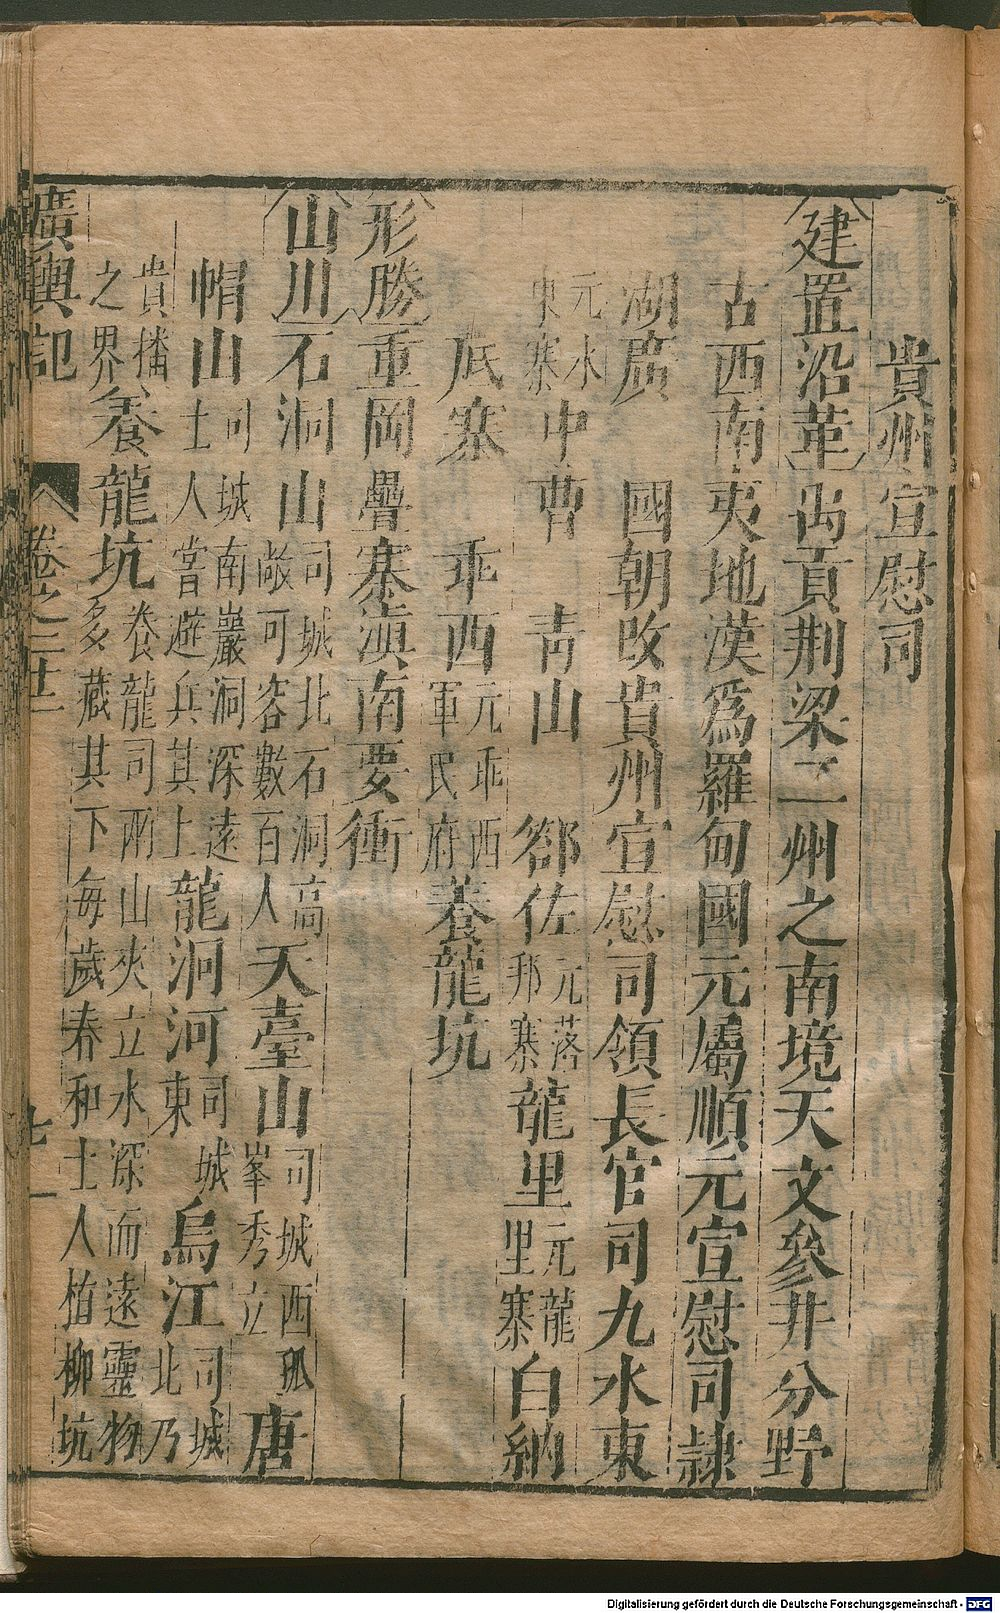 貴州宣慰司
建置沿革禹貢荆梁二州之南境天文參井分野
古西南夷地漢爲羅甸國元屬順元宣慰司隷
湖廣　國朝改貴州宣慰司領長官司九水東
元水東寨中曹　青山　劄佐元落邦寨龍里元龍里寨白納
底寨　乖西元乖西軍民府養龍坑
形勝重岡疊寨滇南要衝
山川石洞山司城北石洞高敞可容數百人天臺山司城西孤峯秀立唐
帽山司城南巖洞深遠土人嘗避兵其上龍洞河司城東烏江司城北乃
貴播之界養龍坑養龍司兩山夾立水深而遠靈物多藏其下每歲春和土人植柳坑
廣輿記
卷之二十二
七
Digitalisierung gefördert durch die Deutsche Forschungsgemeinschaft - DFG